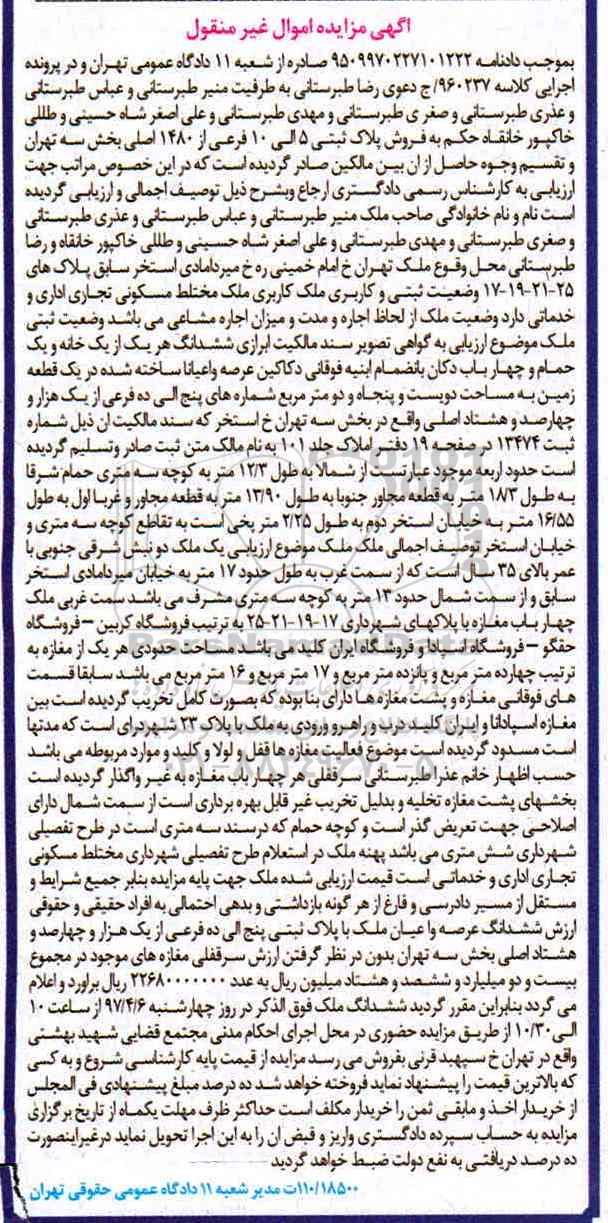 آگهی مزایده اموال غیر منقول
بموجب دادنامه ۹۵۰۹۹۷۰۲۲۷۱۰۱۲۲۲ صادره از شعبه ۱۱ دادگاه عمومی تهران و در پرونده
اجرایی کلاسه ۹۶۰۲۳۷/ج دعوی رضا طبرستانی به طرفیت منیر طبرستانی و عباس طبرستانی
و عذری طبرستانی و صغری طبرستانی و مهدی طبرستانی و علی اصغر شاه حسینی و طللی
خاکپور خانقاه حکم به فروش پلاک ثبتی ۵ الی ۱۰ فرعی از ۱۴۸۰ اصلی بخش سه تهران
و تقسیم وجوه حاصل از ان بین مالکین صادر گردیده است که در این خصوص مراتب جهت
ارزیابی به کارشناس رسمی دادگستری ارجاع وبشرح ذیل توصیف اجمالی و ارزیابی گردیده
است نام و نام خانوادگی صاحب ملک منیر طبرستانی و عباس طبرستانی و عذری طبرستانی
و صغری طبرستانی و مهدی طبرستانی و علی اصغر شاه حسینی و طللی خاکپور خانقاه و رضا
طبرستانی محل وقوع ملک تهران خ امام خمینی ره خ میردامادی استخر سابق پلاک های
۲۵-۲۱-۱۹-۱۷ وضعیت ثبتی و کاربری ملک کاربری ملک مختلط مسکونی تجاری اداری و
خدماتی دارد وضعیت ملک از لحاظ اجاره و مدت و میزان اجاره مشاعی می باشد وضعیت ثبتی
ملک موضوع ارزیابی به گواهی تصویر سند مالکیت ابرازی ششدانگ هر یک از یک خانه و یک
حمام و چهار باب دکان بانضمام ابنیه فوقانی دکاکین عرصه واعیانا ساخته شده در یک قطعه
زمین به مساحت دویست و پنجاه و دو متر مربع شماره های پنج الی ده فرعی از یک هزار و
چهارصد و هشتاد اصلی واقع در بخش سه تهران خ استخر که سند مالکیت ان ذیل شماره
ثبت ۱۳۴۷۴ در صفحه ۱۹ دفتر املاک جلد ۱۰۱ به نام مالک متن ثبت صادر وتسلیم گردیده
است حدود اربعه موجود عبارتست از شمالا به طول ۱۲/۳ متر به کوچه سه متری حمام شرقا
به طول ۱۸/۳ متر به قطعه مجاور جنوبا به طول ۱۳/۹۰ متر به قطعه مجاور و غربا اول به طول
۱۶/۵۵ متر به خیابان استخر دوم به طول ۲/۲۵ متر پخی است به تقاطع کوچه سه متری و
خیابان استخر توصیف اجمالی ملک ملک موضوع ارزیابی یک ملک دو نبش شرقی جنوبی با
عمر بالای ۳۵ سال است که از سمت غرب به طول حدود ۱۷ متر به خیابان میردامادی استخر
سابق و از سمت شمال حدود ۱۳ متر به کوچه سه متری مشرف می باشد سمت غربی ملک
چهار باب مغازه با پلاکهای شهرداری ۱۷-۱۹-۲۱-۲۵ به ترتیب فروشگاه کربین – فروشگاه
حقگو – فروشگاه اسپادا و فروشگاه ایران کلید می باشد مساحت حدودی هر یک از مغازه به
ترتیب چهارده متر مربع و پانزده متر مربع و ۱۷ متر مربع و ۱۶ متر مربع می باشد سابقا قسمت
های فوقانی مغازه و پشت مغازه ها دارای بنا بوده که بصورت کامل تخریب گردیده است بین
مغازه اسپادانا و ایران کلید درب و راهرو ورودی به ملک با پلاک ۲۳ شهرداری است که مدتها
است مسدود گردیده است موضوع فعالیت مغازه ها قفل و لولا و کلید و موارد مربوطه می باشد
حسب اظهار خانم عذرا طبرستانی سرقفلی هر چهار باب مغازه به غیر واگذار گردیده است
بخشهای پشت مغازه تخلیه و بدلیل تخریب غیر قابل بهره برداری است از سمت شمال دارای
اصلاحی جهت تعریض گذر است و کوچه حمام که درسند سه متری است در طرح تفصیلی
شهرداری شش متری می باشد پهنه ملک در استعلام طرح تفصیلی شهرداری مختلط مسکونی
تجاری اداری و خدماتی است قیمت ارزیابی شده ملک جهت پایه مزایده بنابر جمیع شرایط و
مستقل از مسیر دادرسی و فارغ از هر گونه بازداشتی و بدهی احتمالی به افراد حقیقی و حقوقی
ارزش ششدانگ عرصه وا عیان ملک با پلاک ثبتی پنج الی ده فرعی از یک هزار و چهارصد و
هشتاد اصلی بخش سه تهران بدون در نظر گرفتن ارزش سرقفلی مغازه های موجود در مجموع
بیست و دو میلیارد و ششصد و هشتاد میلیون ریال به عدد ۲۲۶۸۰۰۰۰۰۰۰ ریال براورد و اعلام
می گردد بنابراین مقرر گردید ششدانگ ملک فوق الذکر در روز چهارشنبه ۹۷/۴/۶ از ساعت ۱۰
الی ۱۰/۳۰ از طریق مزایده حضوری در محل اجرای احکام مدنی مجتمع قضایی شهید بهشتی
واقع در تهران خ سپهبد قرنی بفروش می رسد مزایده از قیمت پایه کارشناسی شروع و به کسی
که بالاترین قیمت را پیشنهاد نماید فروخته خواهد شد ده درصد مبلغ پیشنهادی فی المجلس
از خریدار اخذ و مابقی ثمن را خریدار مکلف است حداکثر ظرف مهلت یکماه از تاریخ برگزاری
مزایده به حساب سپرده دادگستری واریز و قبض ان را به این اجرا تحویل نماید درغیراینصورت
ده درصد دریافتی به نفع دولت ضبط خواهد گردید
۱۱۰/۱۸۵۰۰ت مدیر شعبه ۱۱ دادگاه عمومی حقوقی تهران